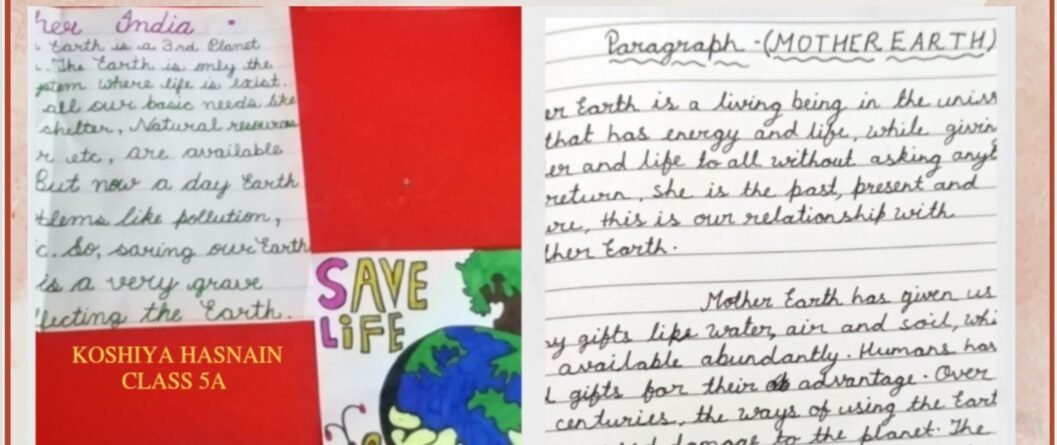 her India
Earth is a 3rd Planet
. The Earth is only the
ystem where life is exist.
all our basic needs like
shelter, Natural resources
r etc, are available
But now a day Earth
blems like pollution,
c. So, saving our Earth
is a very grave
ffecting the Earth.
KOSHIYA HASNAIN
CLASS 5A
SAVE
LiFE
Paragraph - (MOTHER EARTH)
er Earth is a living being in the
that has energy and life, while givin
er and life to all without asking
return. She is the past, present and
ure, this is our relationship with
ther Earth.
Mother Earth has given us
ny gifts like water, air and soil, whi
available abundantly. Humans hav
l gifts for their advantage. Over
centuries, the ways of using the Eart
damage to the planet. The